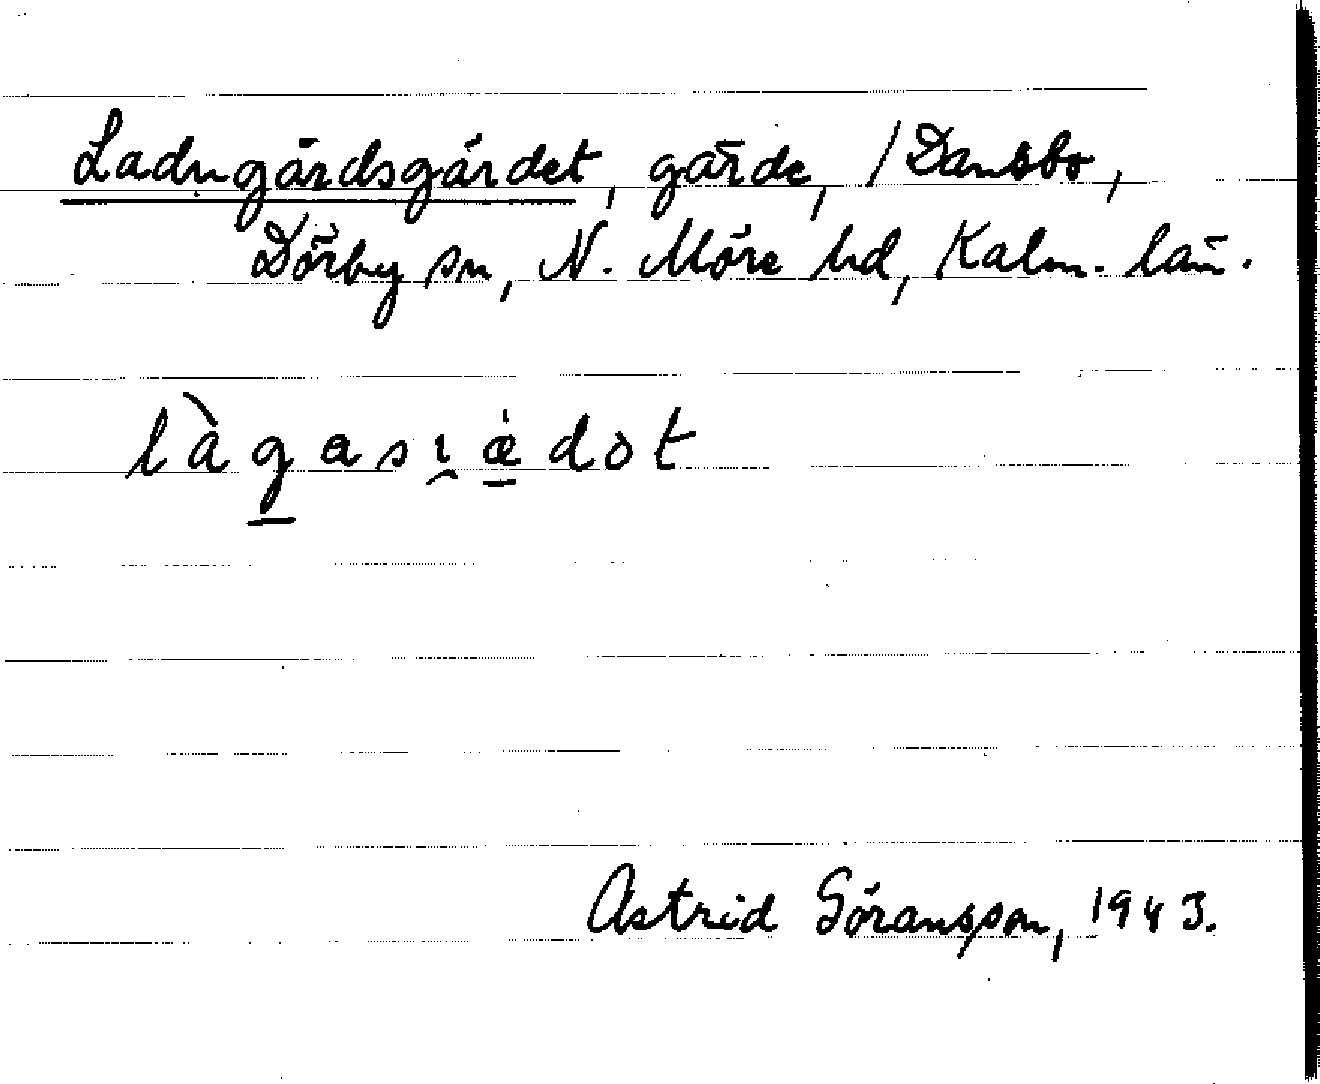 Ladugårdsgärdet, gärde, / Dansbo,
Dörby sn, N. Möre hd, Kalm. län.
làgasɩædot
Astrid Göransson, 1943.